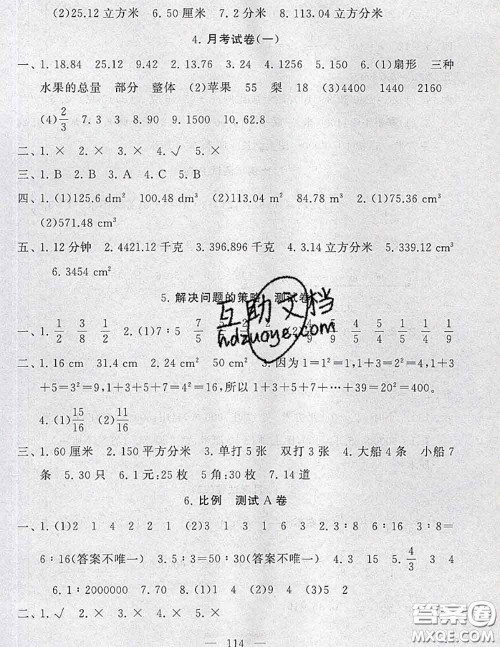 (2)25.12 立方米　6.50 厘米　7.2 分米　8.113.04 立方分米
4.月考试卷(一)
一、1.18.84　25.12　9.42　2.13.76　3.24　4.1256　5.150　6.(1)扇形　三种
水果的总量　部分　整体　(2)苹果　55　梨　18　(3)4400　1440　2160
(4)2/3　7.3　3　8.90　9.1500　10.62.8
二、1.×　2.×　3.×　4.√　5.×
三、1.B　2.B　3.A　4.C　5.B
四、1.(1)125.6 dm²　100.48 dm³　(2)113.04 m²　84.78 m³　2.(1)75.36 cm³
(2)571.48 cm³
五、1.12 分钟　2.4421.12 千克　3.396.896 千克　4.3.14 立方分米　5.339.12 cm³
6.3454 cm²
5.解决问题的策略　测试卷
一、1.1/2　3/8　1/2　2.7∶5
二、1.16 cm　31.4 cm　2.20 cm²　50 cm²　3.因为 1=1,1+3=2²=4,1+3
+5=3²=9,1+3+5+7=4²=16,所以 1+3+5+7+…+39=20²=400。
4.(1)15/16　(2)11/16
三、1.60 厘米　2.150 平方分米　3.单打 5 张　双打 3 张　4.大船 4 条　小船 7
条　5.30 只　6.1 元:25 枚　5 角:30 枚　7.14 道
6.比例　测试 A 卷
一、1.(1)2　1　4　2　1　(2)3　1　3　1　3　1　2.3∶8=
6∶16(答案不唯一)　3.5∶5=50∶30(答案不唯一)　4.3　5.4/3　3　4
6.1∶2000000　7.70　8.(1)4　(2)6　9.(3)5　2
二、1.√　2.×　3.×　4.×　5.×
114
互助文档
hdzuoye.com
答案圈
MXQE.COM